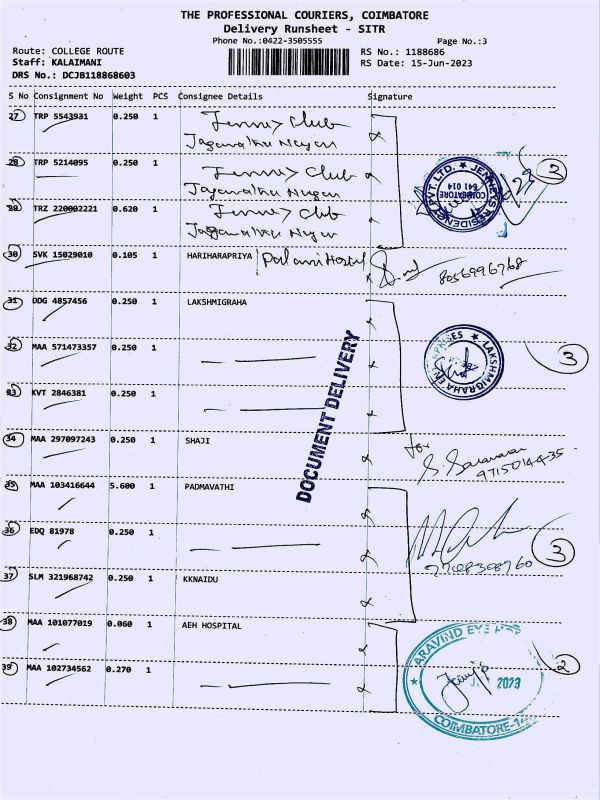 THE PROFESSIONAL COURIERS, COIMBATORE
Delivery Runsheet - SITR
Phone No.:0422-3505555 Page No.:3
Route: COLLEGE ROUTE RS No.: 1188686
Staff: KALAIMANI RS Date: 15-Jun-2023
DRS No.: DCJB118868603
S No Consignment No Weight PCS Consignee Details Signature
27 TRP 5543931 0.250 1 Jenneys Club
28 TRP 5214095 0.250 1 Jenneys Club
29 TRZ 220002221 0.620 1 Jenneys Club
JENNEYS RESIDENCY PVT.LTD.
COIMBATORE
641 014
2
30 SVK 15029010 0.105 1 HARIHARAPRIYA Palani Hostel
8056996768
31 DDG 4857456 0.250 1 LAKSHMIGRAHA
32 MAA 571473357 0.250 1
33 KVT 2846381 0.250 1
LAKSHMIGRAHA ENTERPRISES
3
DOCUMENT DELIVERY
34 MAA 297097243 0.250 1 SHAJI
for
S. Saravanan
35 MAA 103416644 5.600 1 PADMAVATHI
36 EDQ 81978 0.250 1
3
37 SLM 321968742 0.250 1 KKNAIDU
38 MAA 101077019 0.060 1 AEH HOSPITAL
39 MAA 102734562 0.270 1
ARAVIND EYE
2023
COIMBATORE-14
2